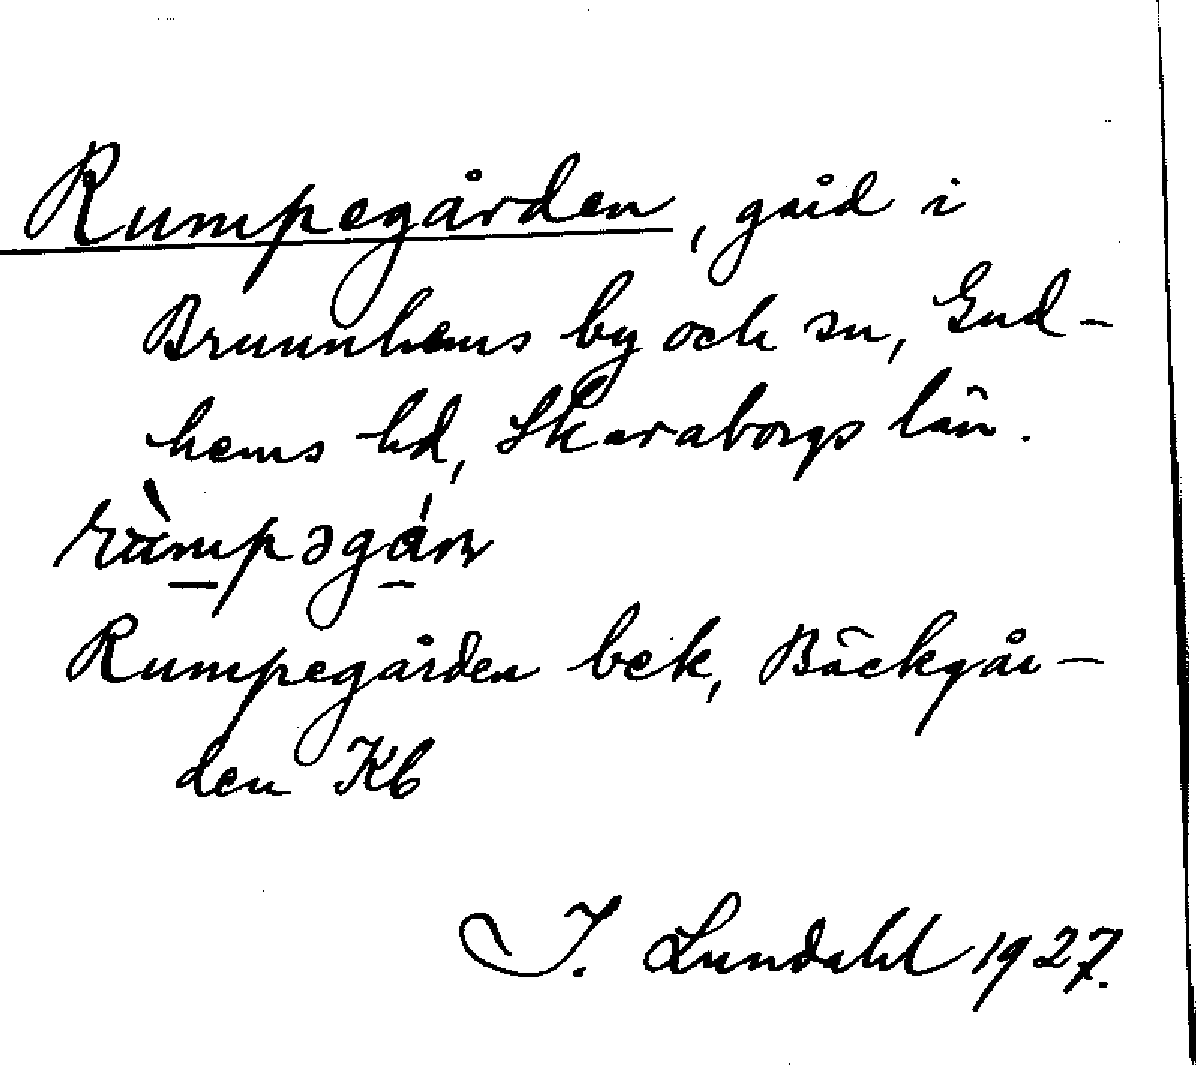 Rumpegården, gård i
Brunnhems by och sn, Gud-
hems hd, Skaraborgs län.
Rumpegården bek, Bäckgår-
den Kb
I. Lundahl 1927.